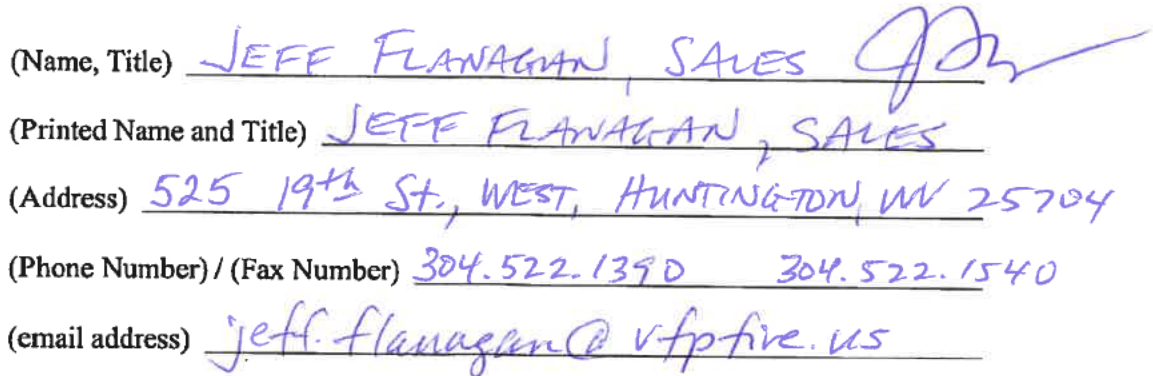 (Name, Title) JEFF FLANAGAN, SALES
(Printed Name and Title) JEFF FLANAGAN, SALES
(Address) 525 19th St., WEST, HUNTINGTON, WV 25704
(Phone Number) / (Fax Number) 304.522.1390 304.522.1540
(email address) jeff.flanagan@vfpfire.us